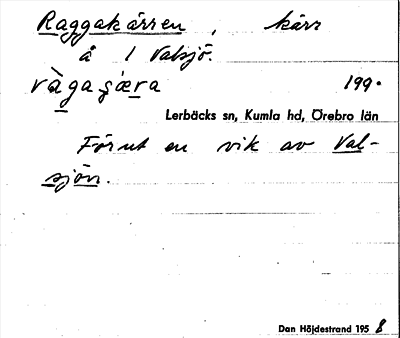 Raggakärren, kärr
å 1 Valsjö.
199.
Lerbäcks sn, Kumla hd, Örebro län
Förut en vik av Val-
sjön.
Dan Höjdestrand 1958